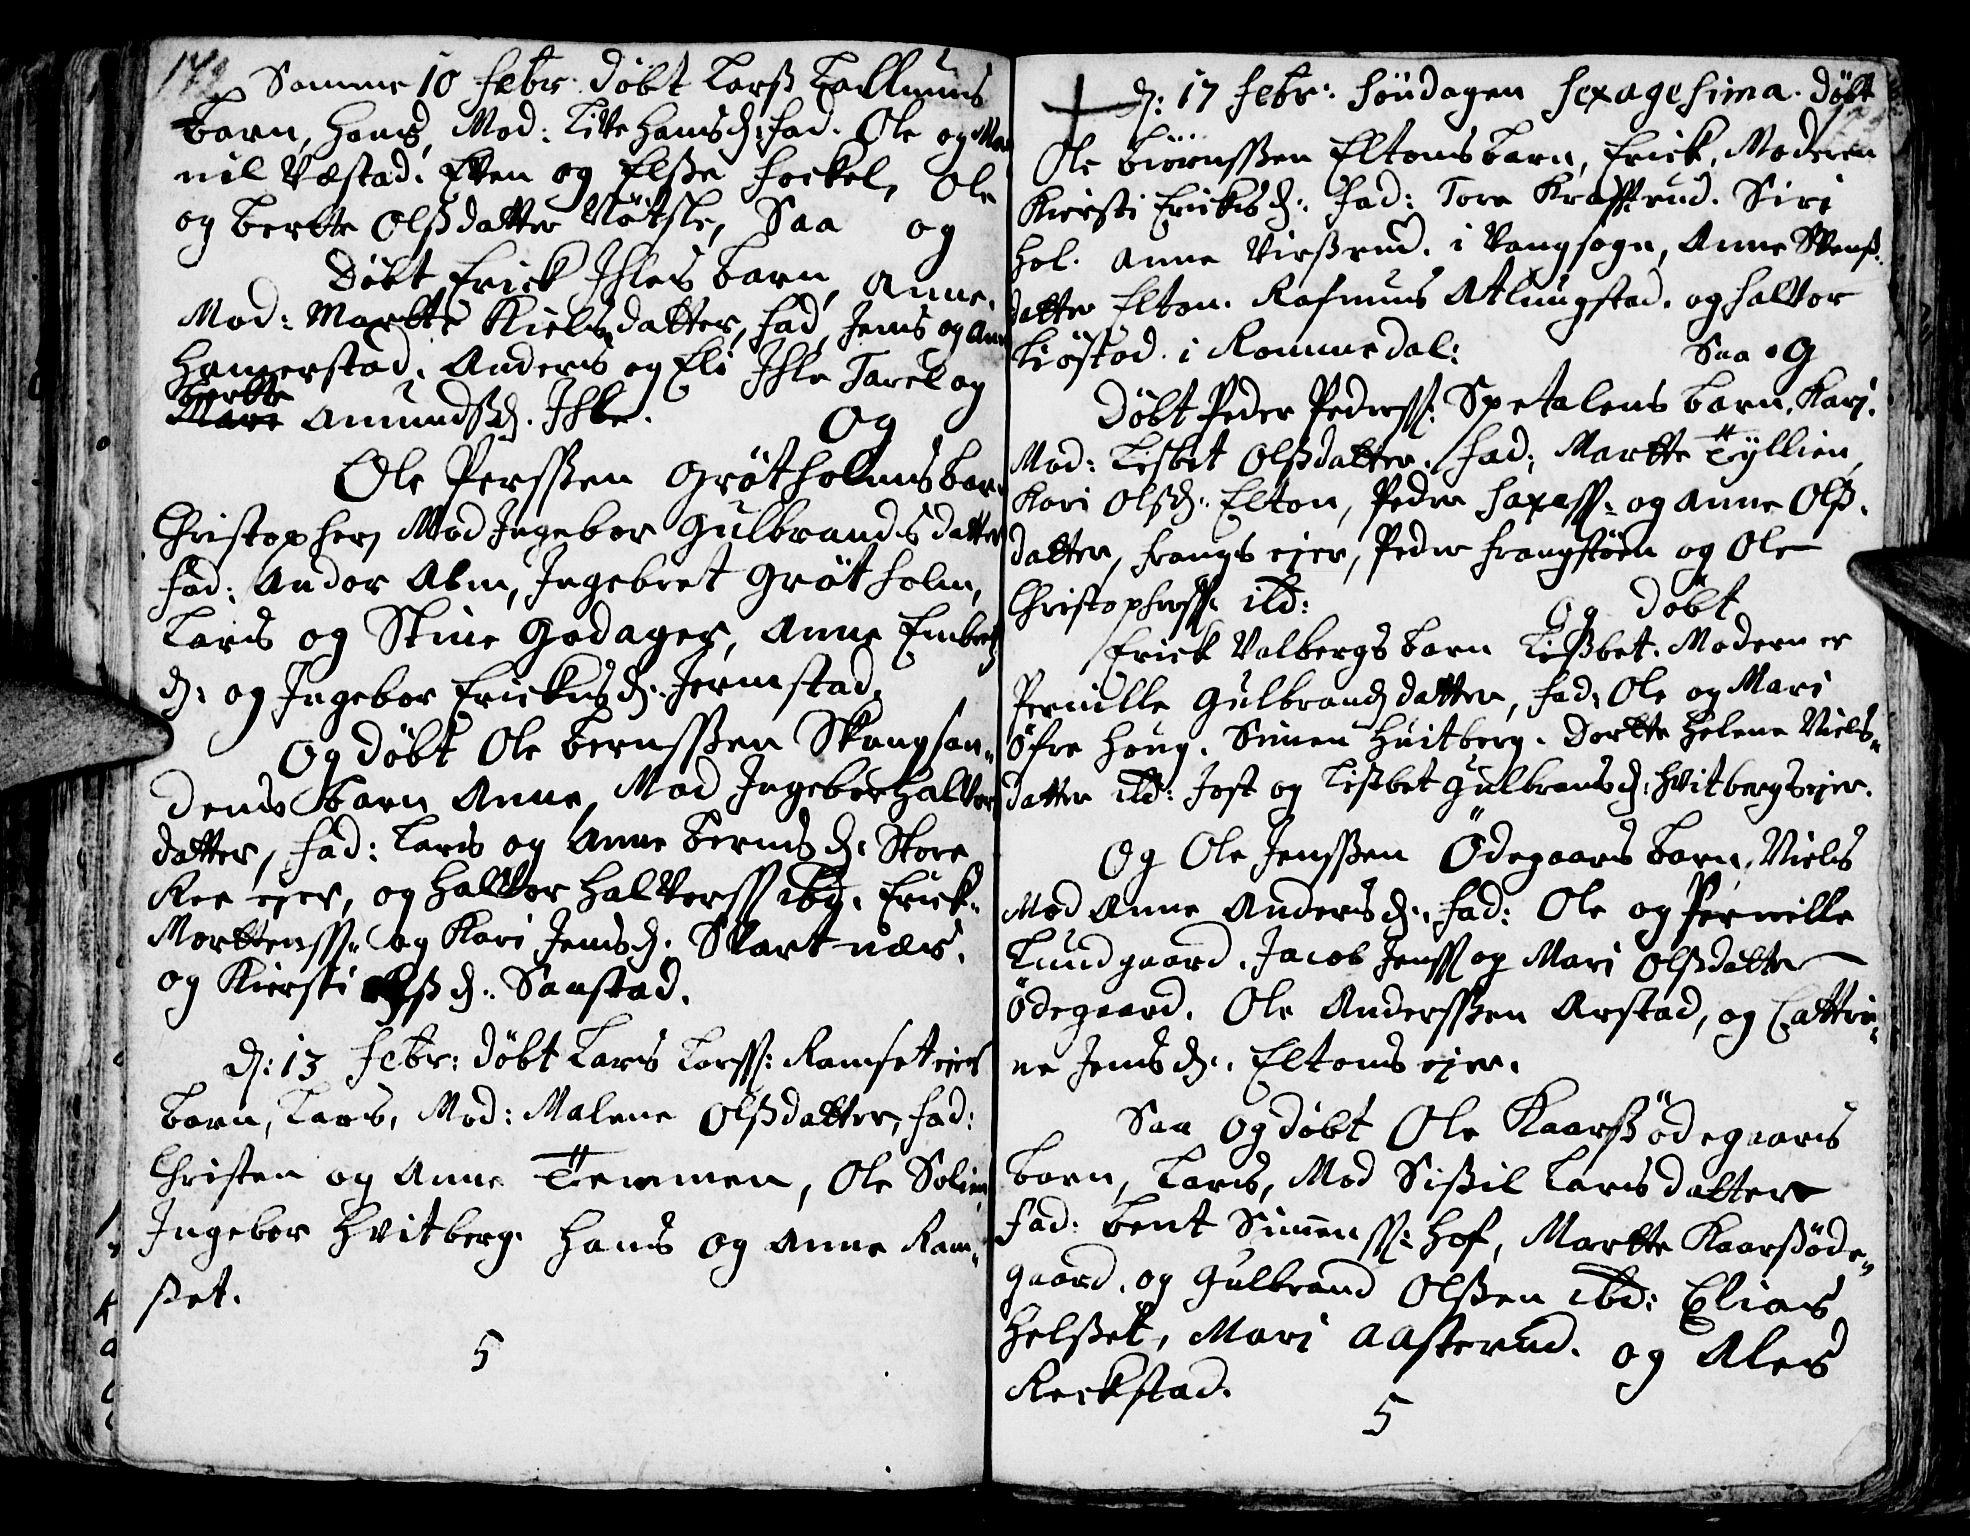 Samme 10 Febr. døbt Larss Tallmuns
barn, Hans, Mod: Live Hansd: Fad. Ole og
nil Væstad. Even og Elsse Hoekel, Ole
og Berte Olssdatter Nøtsle, Saa og
Døbt Erick Ihles barn, Anne.
Mod: Martte Nielsdatter, Fad, Jens og Ann
Hamerstad. Anders og Eli Ihle Tarel og
Berte
Mari Amundssd. Ihle. Og
Ole Perssen Grøtholms barn
Christopher, Mod Ingebor Gulbrands datter
Fad: Andor Alm, Ingebret Grøtholm,
Lars og Stine Godager, Anne Embretz
d: og Ingebor Ericksd: Jermstad.
Og døbt Ole Bernssen Skougsan-
dens barn Anne, Mod Ingebor Halvor
datter, Fad: Lars og Anne Berntsd: Store
Ree ejer, og Halvor Halverss ibd. Erick
Morttenss: og Kari Jensd. Skartnæs.
og Kiersti Olssd: Sanstad.
d: 13 Febr: døbt Lars Larss: Ramset ejes
barn, Lars, Mod: Malene Olssdatter, Fad:
Christen og Anne Temmen, Ole Solien
Ingebor Hvitberg. Hans og Anne Ram-
sset.
5
d: 17 Febr: Søndagen Sexagesima. Døbt
Ole Biørnssen Eltons barn, Erick, Moderen
Kiersti Ericksd: Fad: Tore Krafftrud. Siri
Hol. Anne Virssrud. i Vangsogn, Anne Svenss
datter Elton. Rasmus Atlungstad. og Halvor
Liøstad. i Rommedal: Saa og
Døbt Peder Pederss: Spetalens barn, Kari.
Mod: Lisbet Olssdatter. Fad: Martte Tyllien
Kari Olssd: Elton, Peder Saxess: og Anne Olss.
datter, Frangs ejer, Peder Frangstøen og Ole
Christopherss: ibd: Og døbt
Erick Valbergs barn Lissbet. Moderen er
Pernille Gulbrandsdatter, Fad: Ole og Mari
Øfre Houg. Simen Huitberg. Dortte Helene Niels-
datter ibd: Jost og Lisbet Gulbransd: Hvitbergs ejer.
Og Ole Jenssen Ødegaars barn, Niels
Mod Anne Andersd: Fad: Ole og Pernille
Lundgaard. Jacob Jenss og Mari Olssdatter
Ødegaard. Ole Anderssen Arstad, og Cattri-
ne Jensd: Eltons ejer.
Saa og døbt Ole Kaarssødegaars
barn, Lars, Mod Sissil Larsdatter
Fad: Bent Simenss: Hof, Martte Kaarssøde-
gaard. og Gulbrand Olssen ibd: Elias
Helsset, Mari Aasterud. og Ales
Reckstad.
5